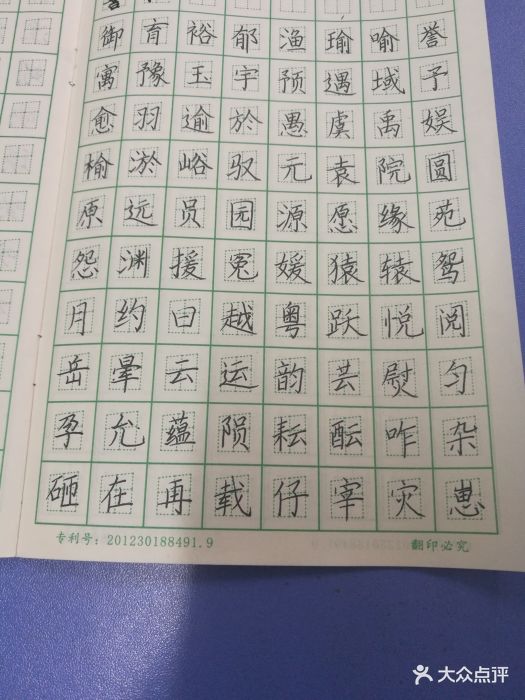 御育裕郁渔瑜喻誉
寓豫玉宇预遇域予
愈羽逾於愚虞禹娱
榆淤峪驭元袁院圆
原远员园源愿缘苑
怨渊援冤媛猿辕鸳
月约曰越粤跃悦阅
岳晕云运韵芸熨匀
孕允蕴陨耘酝咋杂
砸在再载仔宰灾崽
专利号：201230188491.9 翻印必究
大众点评